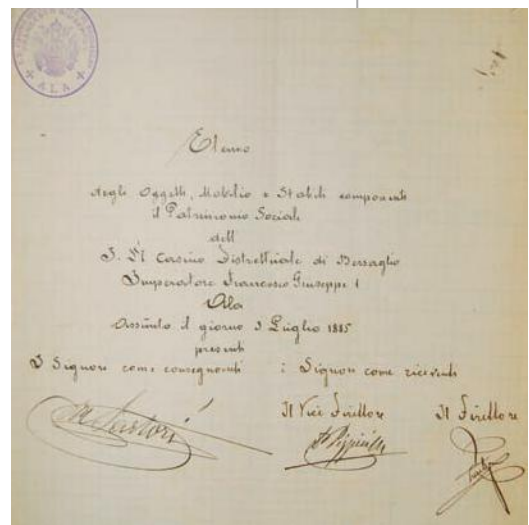 ALA
Elenco
degli Oggetti, Mobilio e Stabili componenti
il Patrimonio Sociale
dell
I. R. Casino Distrettuale di Bersaglio
Imperatore Francesco Giuseppe I
Ala
Assunto il giorno 3 Luglio 1885
presenti
I Signori come consegnanti i Signori come riceventi
Il Vice Direttore Il Direttore
Sartori